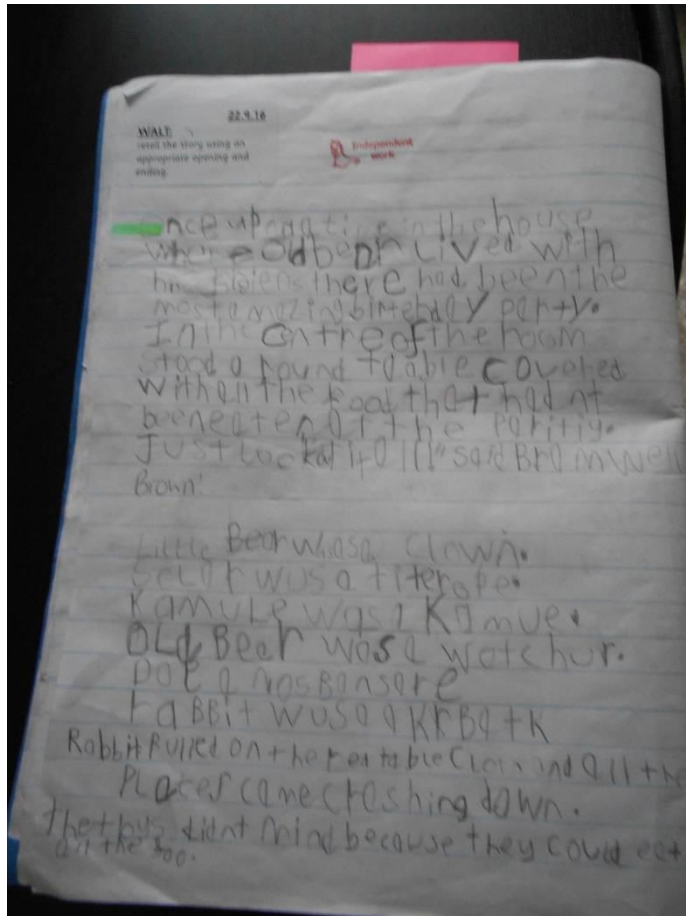 22.9.16
WALT
retell the story using an
appropriate opening and
ending.
Independent
work
Once upon a time in the house
where old bear lived with
his there had been the
most amazing birthday party.
In the centre of the room
stood a round toable covered
with all the food that had nt
been eaten at the paritiy.
Just Look at it all!" said Bramwell
Brown!
Little Bear whas a Clown.
was a titerope.
Kamule was a Kamue.
OLd Bear was a watchur.
a
raBBit wus a akrBatk
Rabbit Pulled on the table Cloth and all the
Places came crashing down.
the toys didnt mind because they could eat
all the